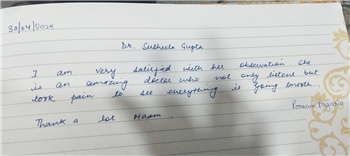 30/04/2024
Dr. Susheela Gupta
I am very satisfied with her observation she
is an amazing doctor who not only listens but
took pain to see everything is going smooth
Thank a lot Maam.
Poonam